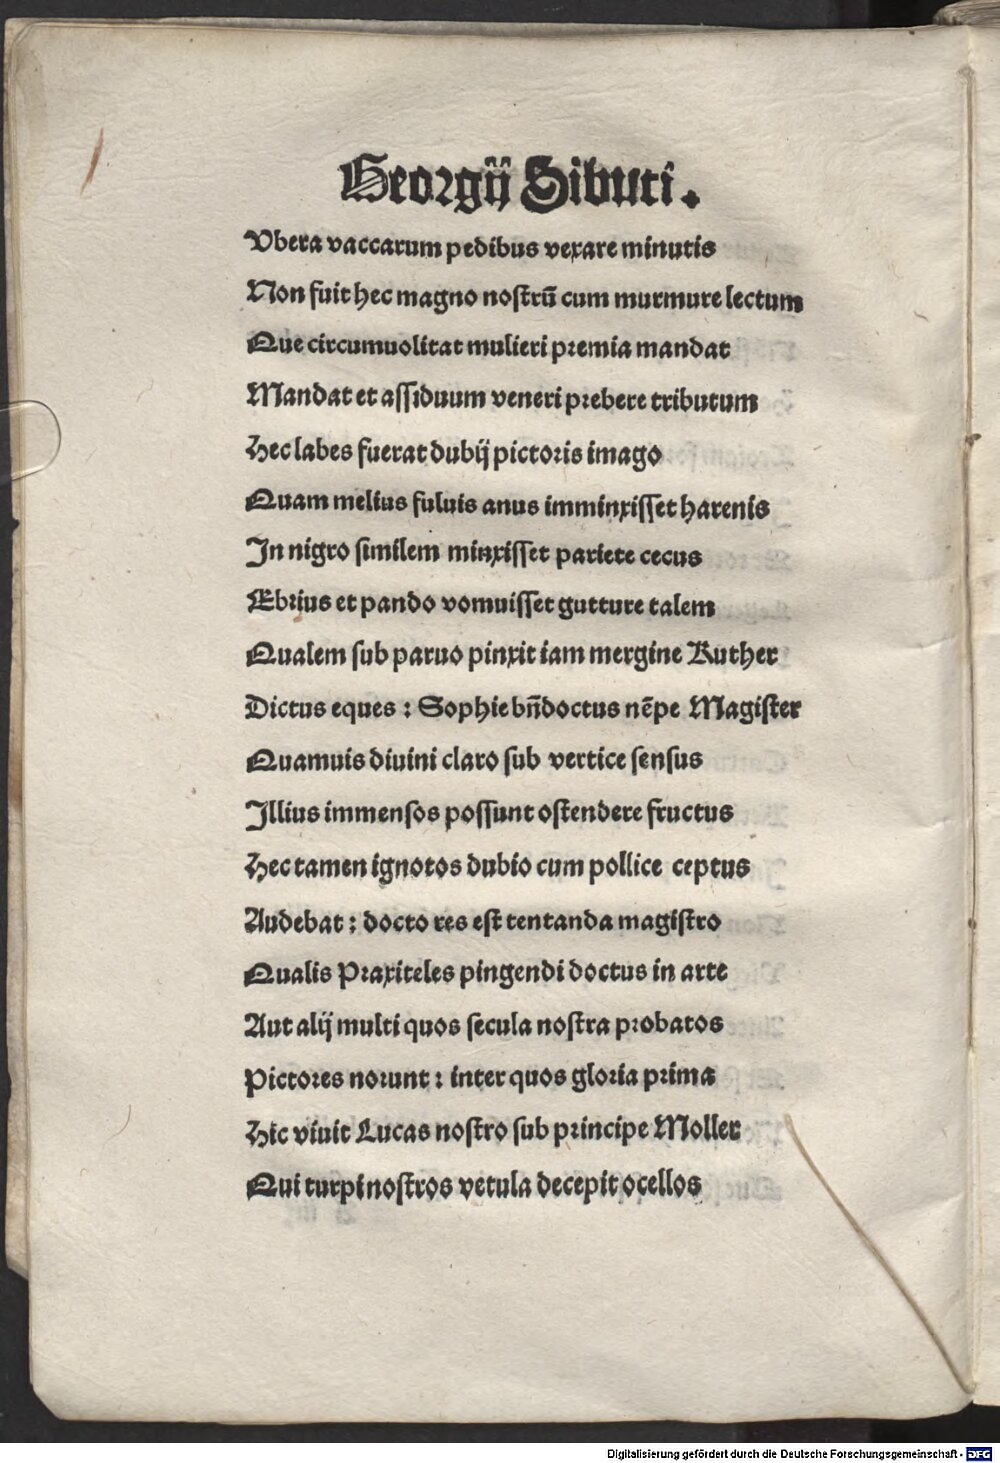 Georgij Sibuti.
Vbera vaccarum pedibus vexare minutis
Non fuit hec magno nostrū cum murmure lectum
Que circumuolitat mulieri premia mandat
Mandat et assiduum veneri prebere tributum
Hec labes fuerat dubij pictoris imago
Quam melius fuluis anus imminxisset harenis
In nigro similem minxisset pariete cecus
Ebrius et pando vomuisset gutture talem
Qualem sub paruo pinxit iam mergine Ruther
Dictus eques : Sophie bn̄doctus nēpe Magister
Quamuis diuini claro sub vertice sensus
Illius immensos possunt ostendere fructus
Hec tamen ignotos dubio cum pollice ceptus
Audebat : docto res est tentanda magistro
Qualis Praxiteles pingendi doctus in arte
Aut alij multi quos secula nostra probatos
Pictores norunt : inter quos gloria prima
Hic viuit Lucas nostro sub principe Moller
Qui turpi nostros vetula decepit ocellos
Digitalisierung gefördert durch die Deutsche Forschungsgemeinschaft - DFG